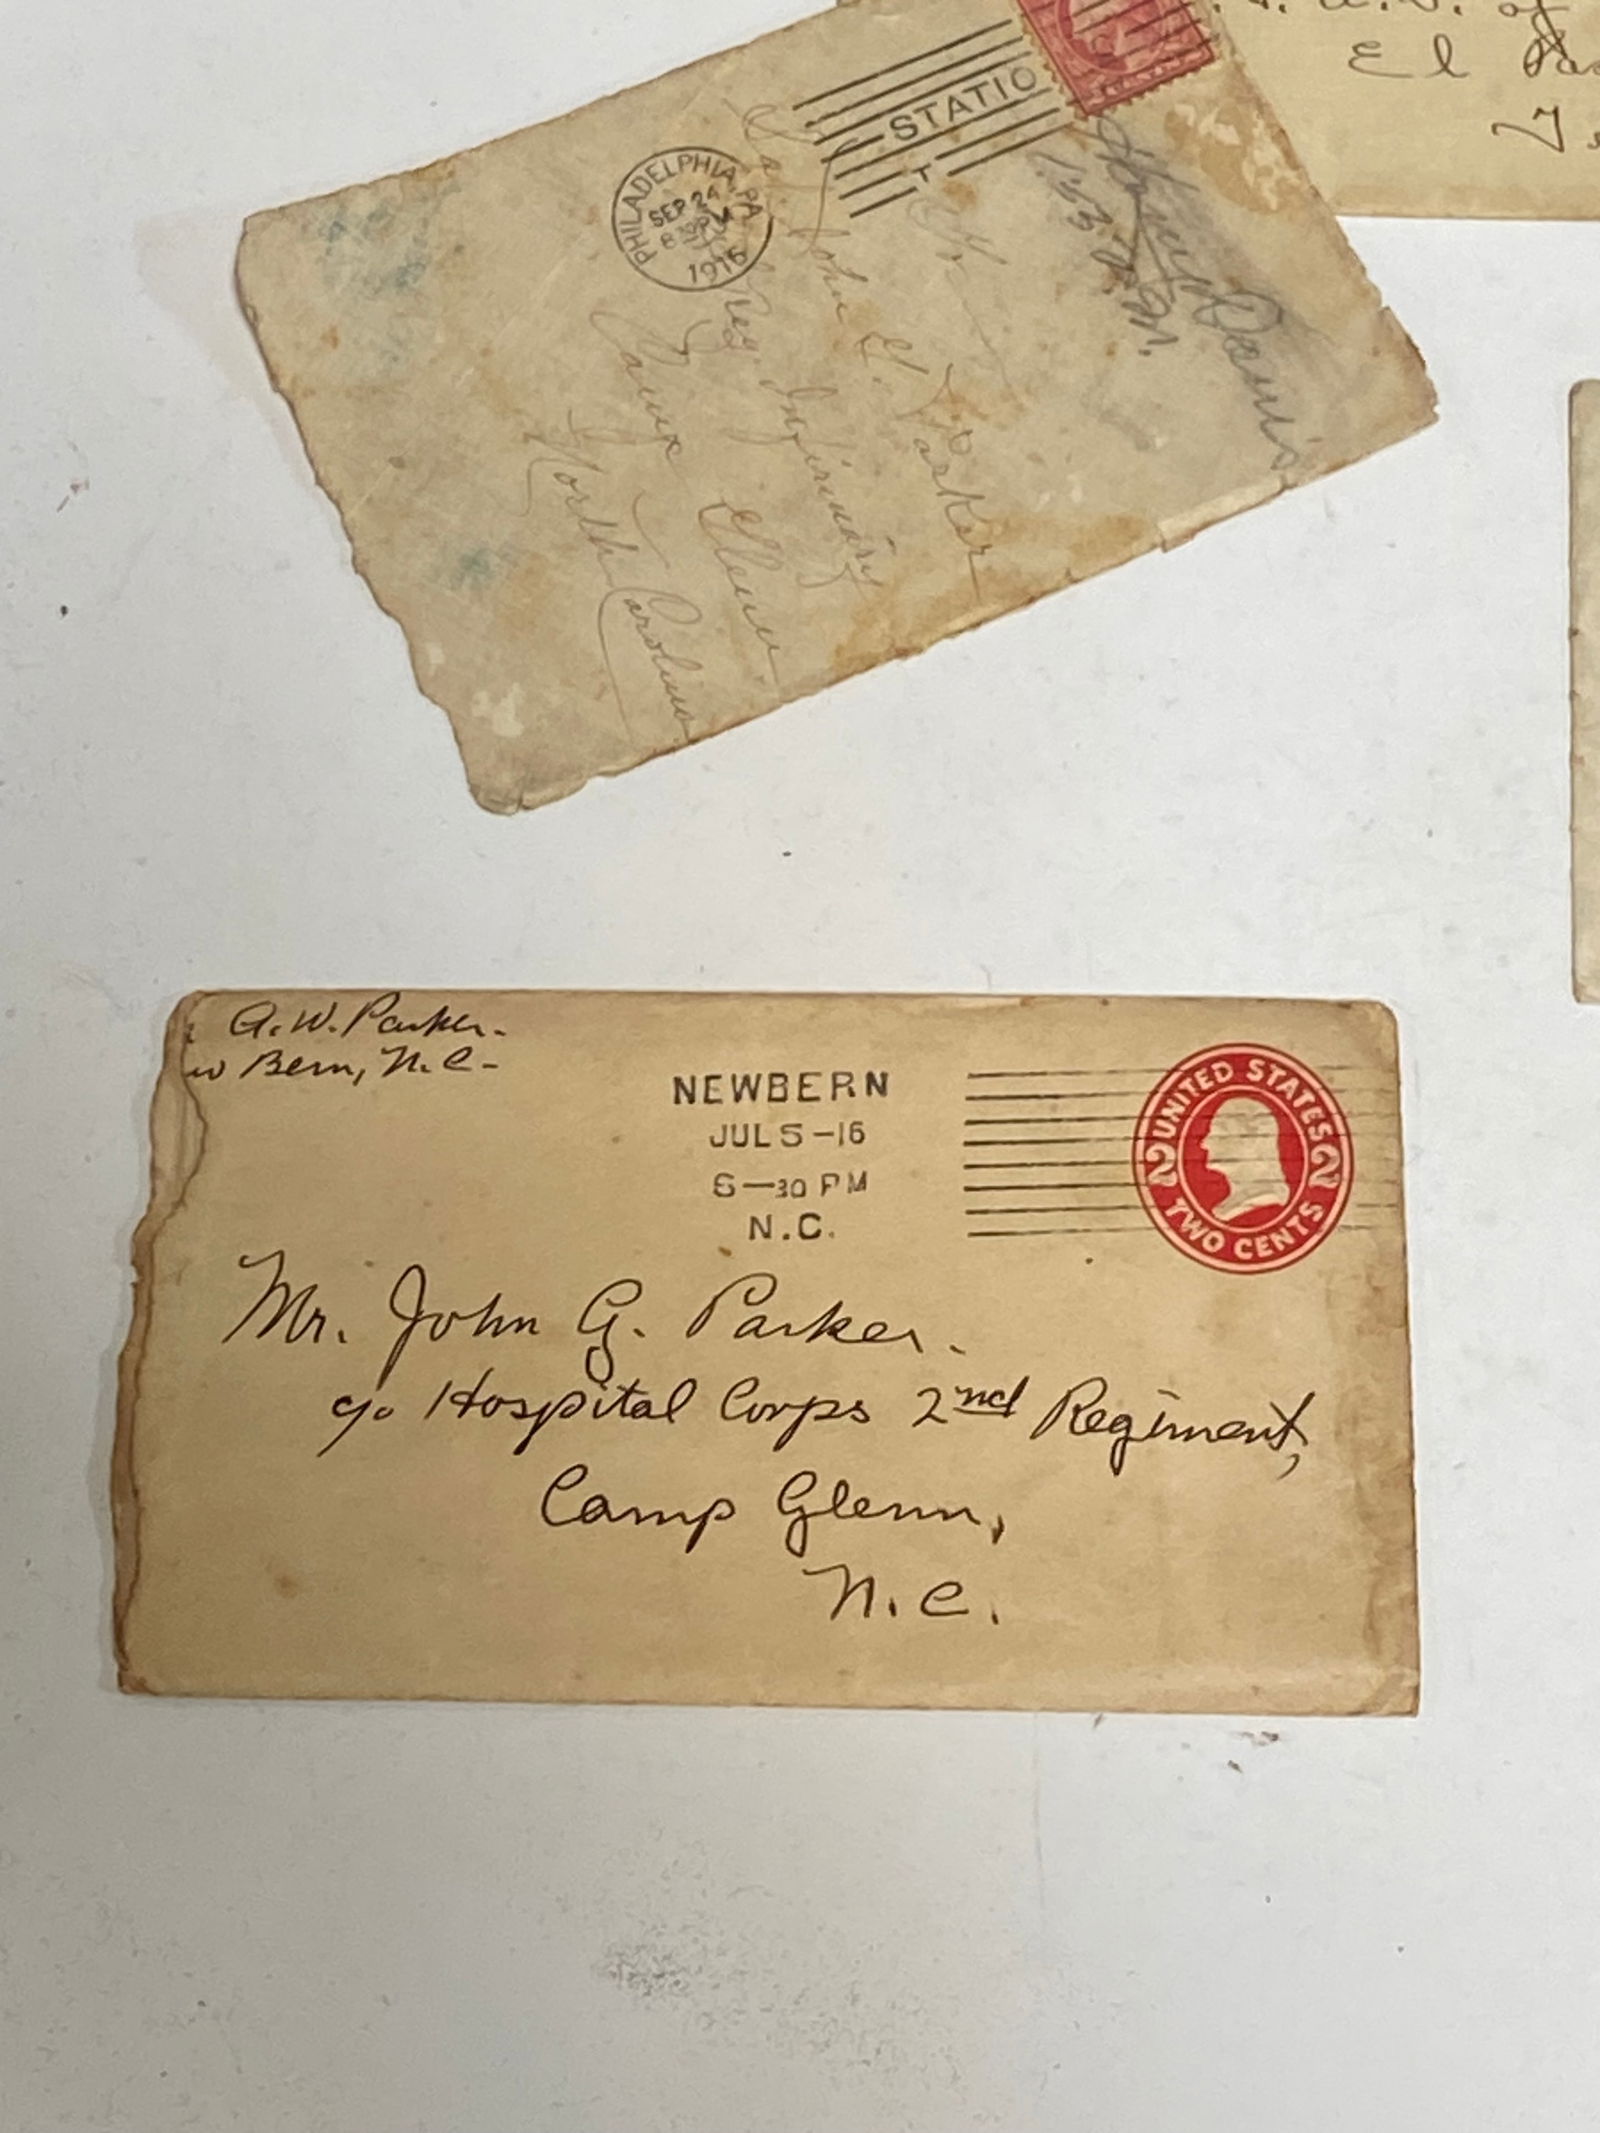 El
STATIO
T
PHILADELPHIA, PA
SEP 24
1916
John G. Parker
Reg. Infirmary
Camp Glenn
North Carolina
A. W. Parker.
w Bern, N.C.
NEWBERN
JUL 5-16
6-30 PM
N.C.
UNITED STATES
2 2
TWO CENTS
Mr. John G. Parker.
c/o Hospital Corps 2nd Regiment,
Camp Glenn,
N.C.